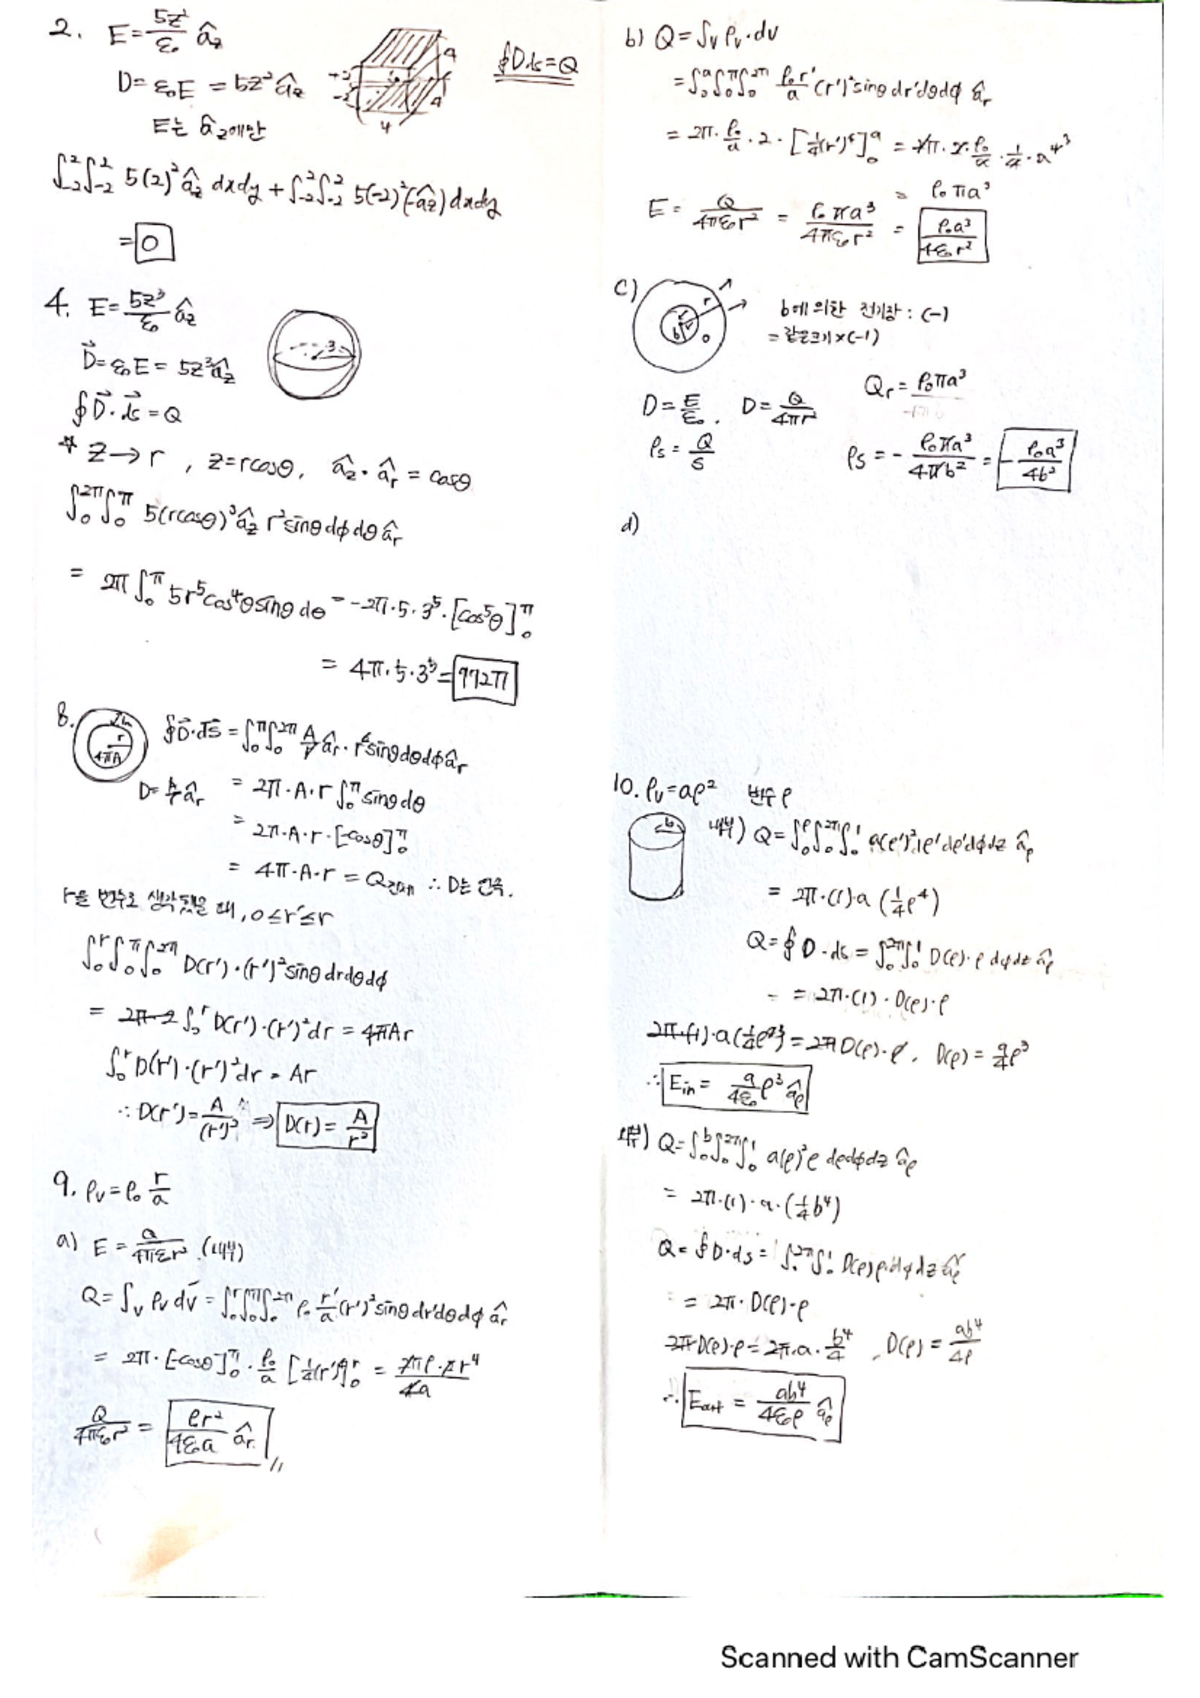 2. E = 5z²/ε₀ â_z
∮D·ds = Q
D = ε₀E = 5z²â_z
E는 â_z에만
+2
-2
4
4
4
∫₋₂²∫₋₂² 5(2)² â_z dxdy + ∫₋₂²∫₋₂² 5(-2)²(-â_z) dxdy
= 0
4. E = 5z³/ε₀ â_z
3
D = ε₀E = 5z³â_z
∮D·ds = Q
* z → r , z = rcosθ, â_z·â_r = cosθ
∫₀^2π ∫₀^π 5(rcosθ)³â_z r²sinθ dϕ dθ â_r
= 2π ∫₀^π 5r⁵cos⁴θ sinθ dθ = -2π·5·3⁵·[cos⁵θ]₀^π
= 4π·5·3⁵ = 972π
8. ∮D·ds = ∫₀^π ∫₀^2π A/r â_r · r²sinθ dθ dϕ â_r
r
4πA
D = A/r â_r
= 2π·A·r ∫₀^π sinθ dθ
= 2π·A·r·[-cosθ]₀^π
= 4π·A·r = Q ∴ D는 연속.
r을 변수로 생각했을 때, 0 ≤ r' ≤ r
∫₀^r ∫₀^π ∫₀^2π D(r')·(r')²sinθ dr dθ dϕ
= 2π·2 ∫₀^r D(r')·(r')² dr = 4πAr
∫₀^r D(r')·(r')² dr = Ar
∴ D(r') = A/(r')² ⇒ D(r) = A/r²
9. ρ_v = ρ₀ r/a
a) E = Q/4πε₀r² (내부)
Q = ∫_v ρ_v dv = ∫₀^r ∫₀^π ∫₀^2π ρ₀ r'/a (r')² sinθ dr'dθdϕ â_r
= 2π·[-cosθ]₀^π · ρ₀/a [¼(r')⁴]₀^r = 2πρ·2r⁴/4a
Q/4πε₀r² = ρr²/4ε₀a â_r //
b) Q = ∫_v ρ_v·dv
= ∫₀^a ∫₀^π ∫₀^2π ρ₀r'/a (r')² sinθ dr'dθdϕ â_r
= 2π·ρ₀/a·2·[¼(r')⁴]₀^a = 2π·2·ρ₀/a·¼·a⁴ ³
= ρ₀πa³
E = Q/4πε₀r² = ρ₀πa³/4πε₀r² = ρ₀a³/4ε₀r²
c)
r
b
b에 의한 전기장 : (-)
= 같은크기 × (-1)
D = E/ε₀ . D = Q/4πr Q_r = ρ₀πa³
ρ_s = Q/S ρ_s = - ρ₀πa³/4πb² = - ρ₀a³/4b²
d)
10. ρ_v = aρ² 변수 ρ
b
내부) Q = ∫₀^ρ ∫₀^2π ∫₀¹ a(ρ')²ρ' dρ'dϕdz â_ρ
= 2π·(1)·a (¼ρ⁴)
Q = ∮D·ds = ∫₀^2π ∫₀¹ D(ρ)·ρ dϕdz â_ρ
= 2π·(1)·D(ρ)·ρ
2π·(1)·a(¼ρ⁴³) = 2πD(ρ)·ρ , D(ρ) = a/4 ρ³
∴ E_in = a/4ε₀ ρ³ â_ρ
외부) Q = ∫₀^b ∫₀^2π ∫₀¹ a(ρ)²ρ dρdϕdz â_ρ
= 2π·(1)·a·(¼b⁴)
Q = ∮D·ds = ∫₀^2π ∫₀¹ D(ρ)ρ·dϕdz â_ρ
= 2π·D(ρ)·ρ
2π·D(ρ)·ρ = 2π·a·b⁴/4 , D(ρ) = ab⁴/4ρ
∴ E_out = ab⁴/4ε₀ρ â_ρ
Scanned with CamScanner